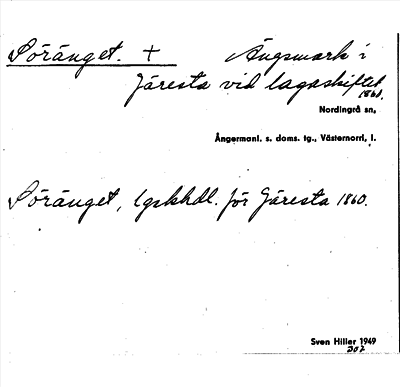 Söränget. + Ängsmark i
Järesta vid lagaskiftet
1860.
Nordingrå sn,
Ångermanl. s. doms. tg., Västernorrl. l.
Söränget, lgskhdl. för Järesta 1860.
Sven Hiller 1949